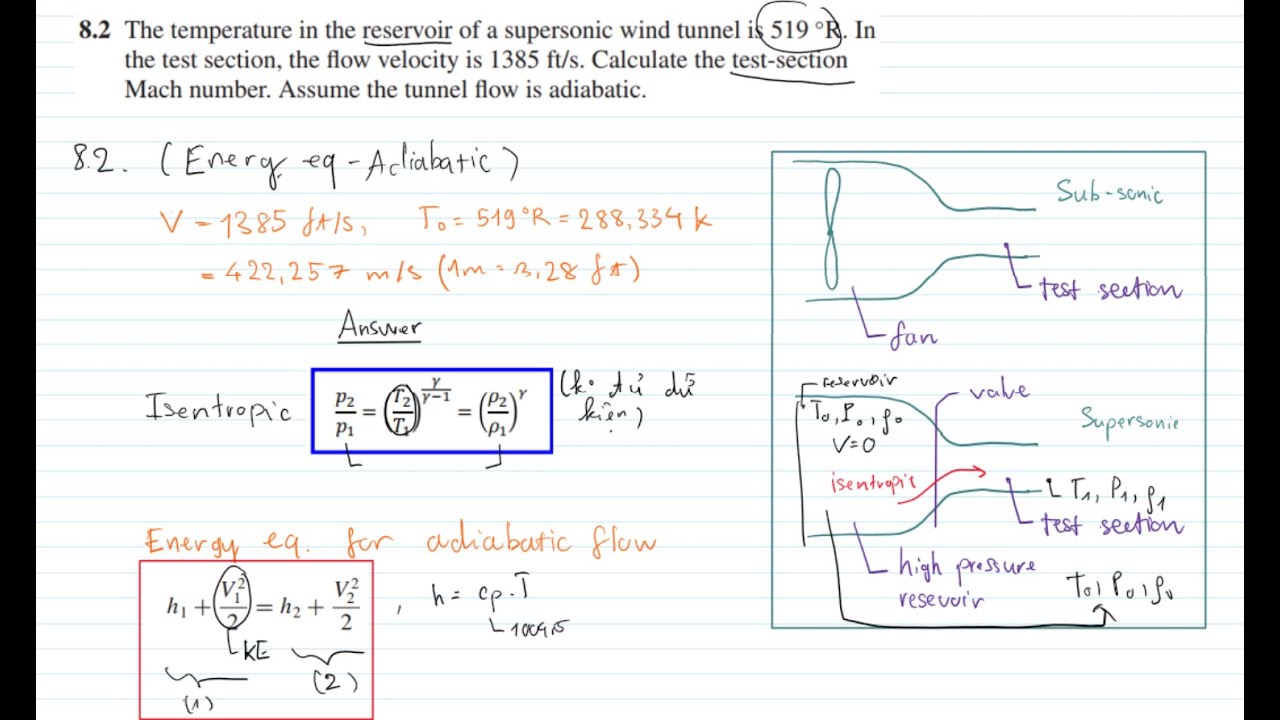 8.2 The temperature in the reservoir of a supersonic wind tunnel is 519 °R. In
the test section, the flow velocity is 1385 ft/s. Calculate the test-section
Mach number. Assume the tunnel flow is adiabatic.
8.2. (Energy eq - Adiabatic)
V = 1385 ft/s, T₀ = 519°R = 288,334 k
= 422,257 m/s (1m = 3,28 ft)
Answer
Isentropic p₂/p₁ = (T₂/T₁)^(γ/(γ-1)) = (ρ₂/ρ₁)^γ (k° từ dữ
kiện)
Energy eq. for adiabatic flow
h₁ + V₁²/2 = h₂ + V₂²/2 , h = cp.T
1004,5
KE
(1) (2)
Sub-sonic
test section
fan
reservoir
T₀, P₀, ρ₀
V=0
valve
Supersonic
isentropic
T₁, P₁, ρ₁
test section
high pressure
resevoir
T₀, P₀, ρ₀